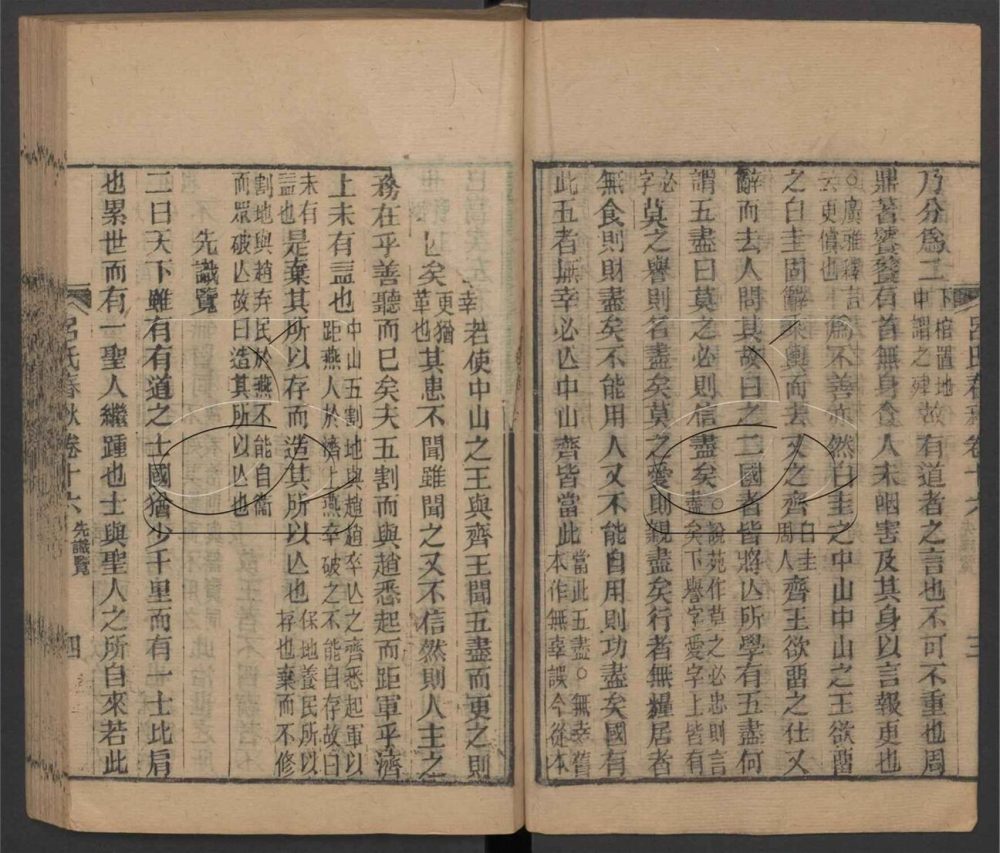 乃分爲二下棺置地中謂之殔故有道者之言也不可不重也周
鼎著饕餮有首無身食人未咽害及其身以言報更也
○廣雅釋言云更償也爲不善亦然白圭之中山中山之王欲畱
之白圭固辭乘輿而去又之齊白圭周人齊王欲畱之仕又
辭而去人問其故曰之二國者皆將亾所學有五盡何
謂五盡曰莫之必則信盡矣○說苑作莫之必忠則言盡矣下譽字愛字上皆有
必字莫之譽則名盡矣莫之愛則親盡矣行者無糧居者
無食則財盡矣不能用人又不能自用則功盡矣國有
此五者無幸必亾中山齊皆當此當此五盡○無幸舊本作無辜誤今從本
呂氏春秋卷十六 三
若使中山之王與齊王聞五盡而更之則
必不亾矣幸更猶革也其患不聞雖聞之又不信然則人主之
務在乎善聽而已矣夫五割而與趙悉起而距軍乎濟
上未有益也中山五割地與趙趙卒亾之齊悉起軍以距燕人於濟上燕卒破之不能自存故曰
未有益也是棄其所以存而造其所以亾也保地養民所以存也棄而不修
割地與趙弃民於燕不能自衞而眾破亾故曰造其所以亾也
先識覽
二曰天下雖有有道之士國猶少千里而有一士比肩
也累世而有一聖人繼踵也士與聖人之所自來若此
呂氏春秋卷十六 先識覽 四